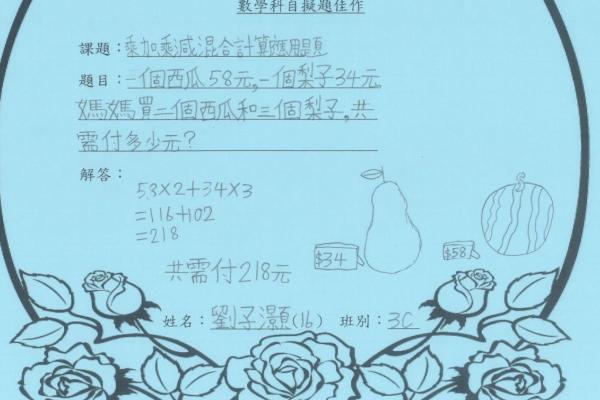 數學科自擬題佳作
課題：乘加乘減混合計算應用題
題目：一個西瓜58元,一個梨子34元,
媽媽買二個西瓜和三個梨子,共
需付多少元？
解答：
58×2+34×3
=116+102
=218
共需付218元
$34
$58
姓名：劉子灝(16) 班別：3C